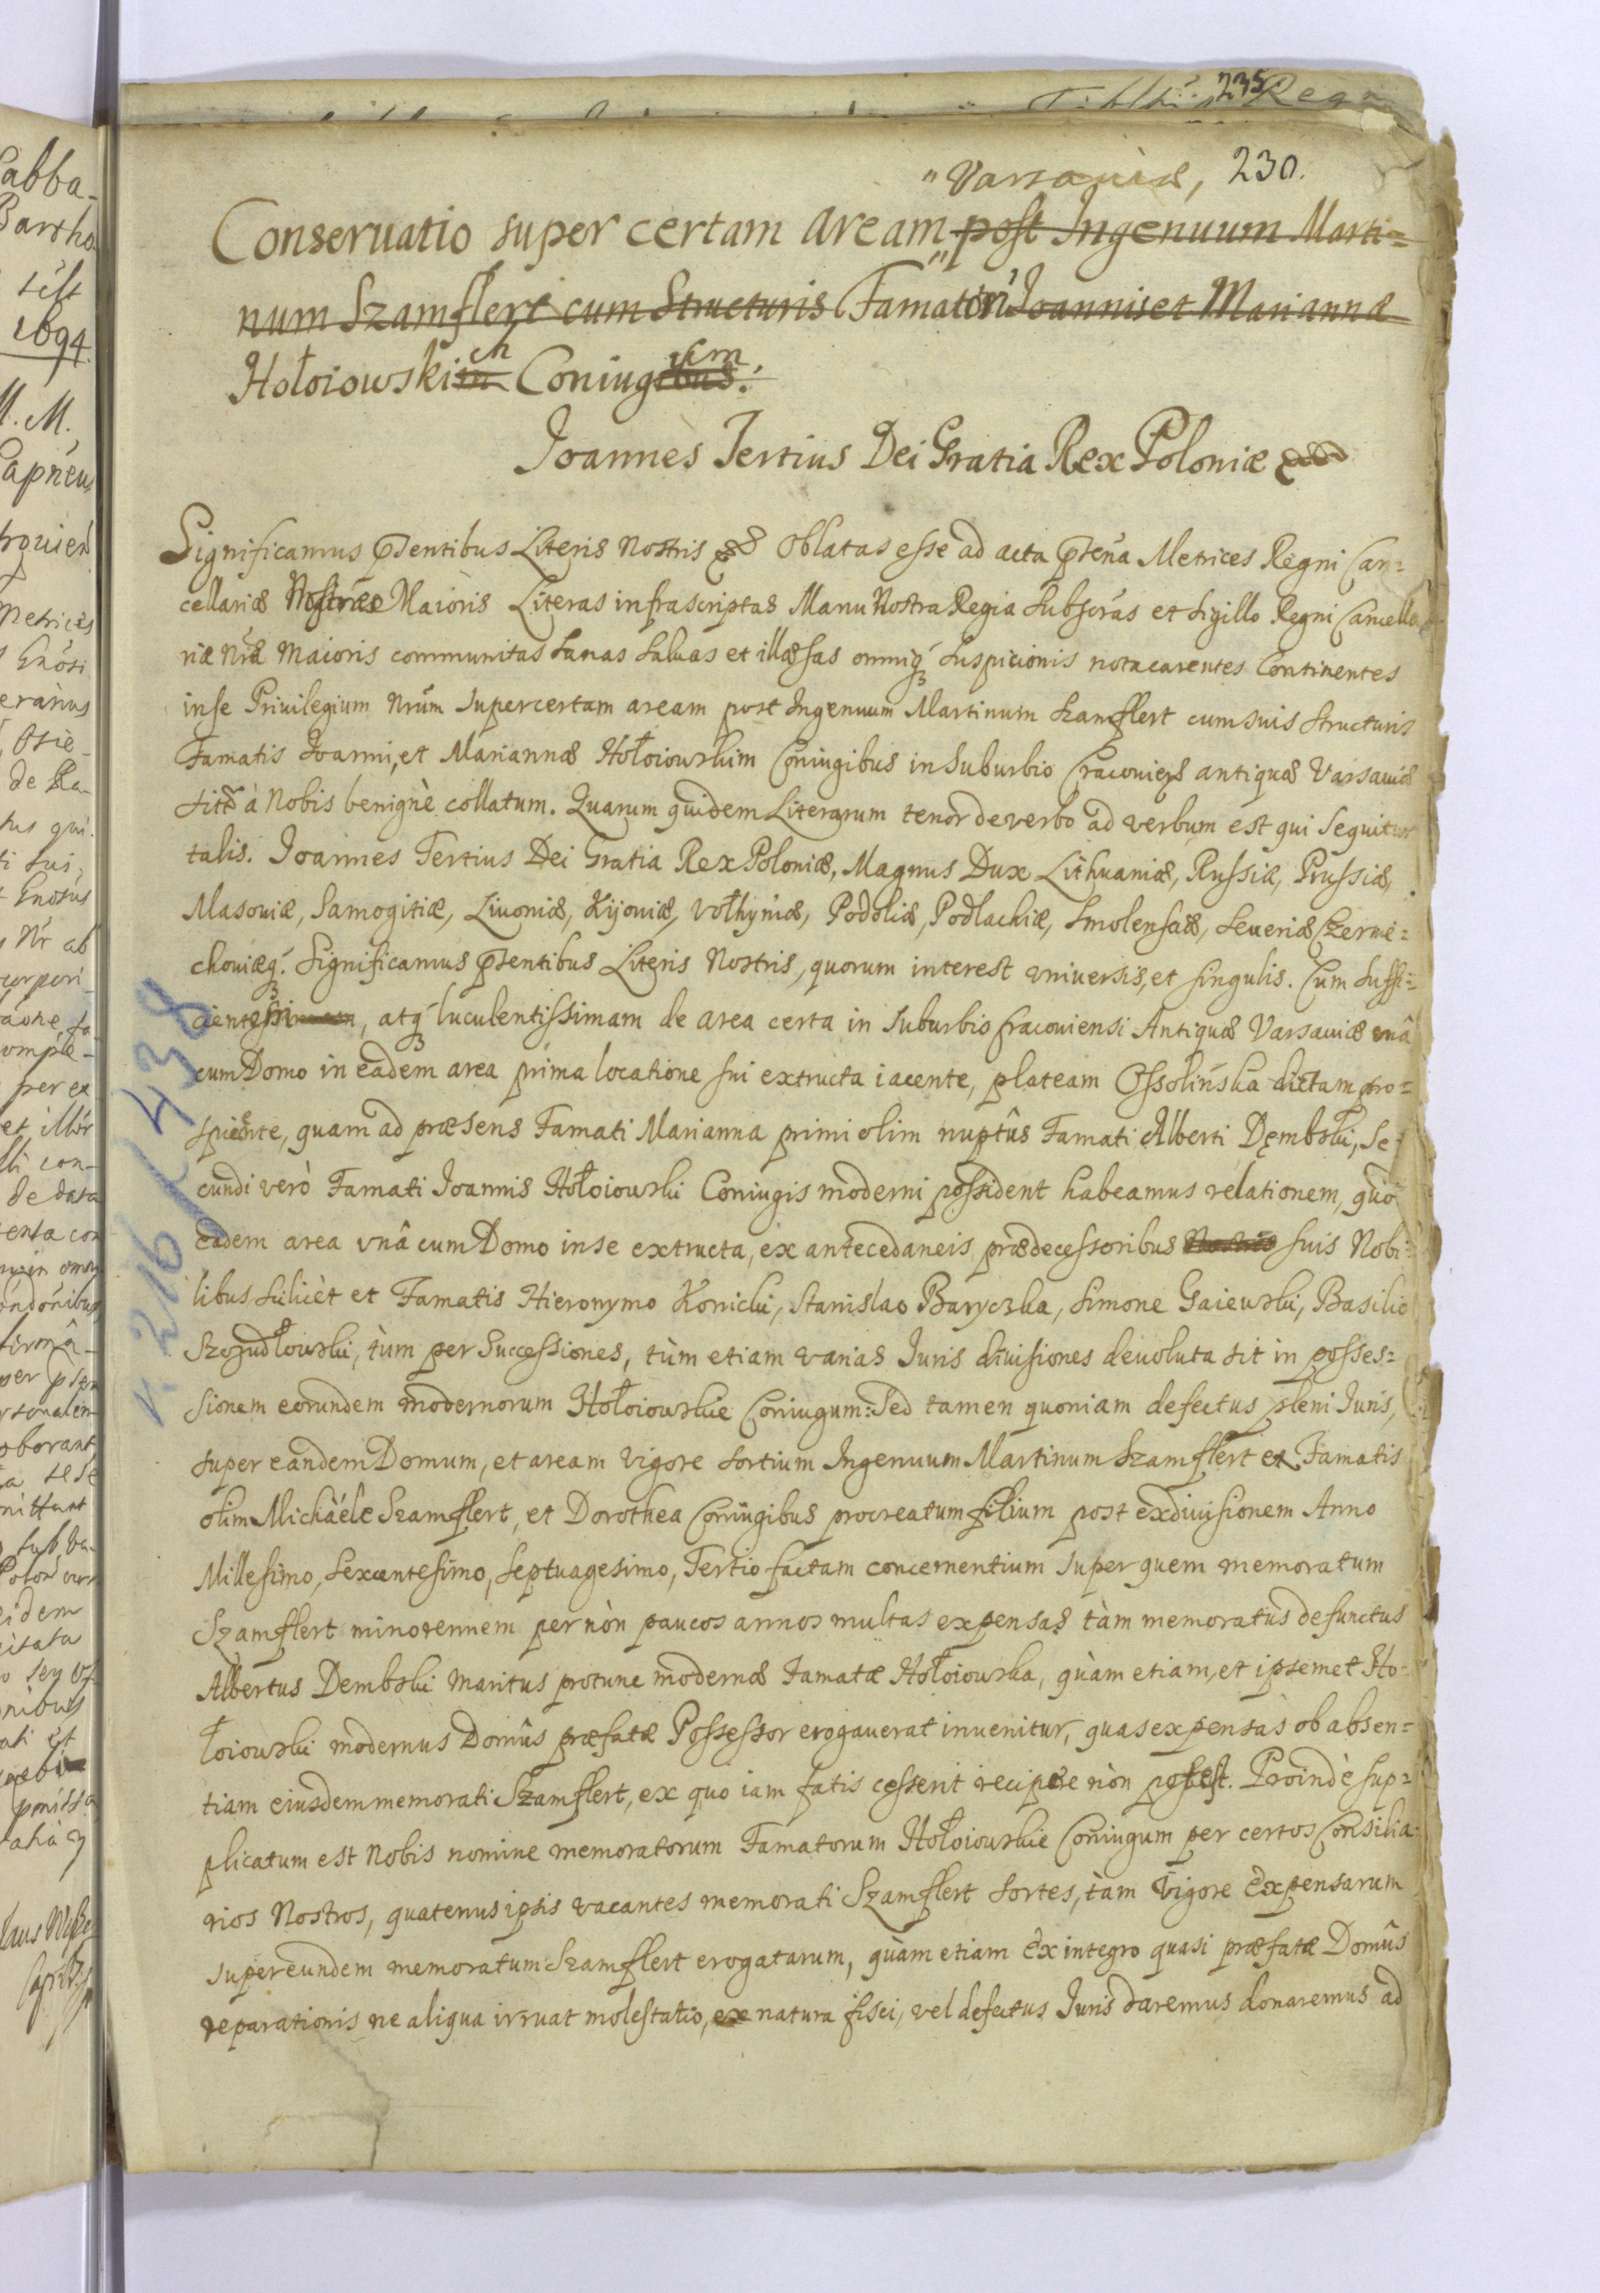 235
230.
"Varsaviæ,
Conseruatio super certam aream "post Ingenuum Marti=
num Szamflert cum Structuris Famator Joannis et Mariannæ
Hołoiowskich Coniugum.
Joannes Tertius Dei Gratia Rex Poloniæ
Significamus pñtentibus Literis Nostris Oblatas esse ad acta pñtña Metrices Regni Can=
cellariæ Nostræ Maioris Literas infrascriptas Manu Nostra Regia Subscr̃as et Sigillo Regni Cancella
riæ Nr̃æ Maioris communitas Sanas Saluas et illæsas omniq́; Suspicionis nota carentes Continentes
in se Priuilegium Nrũm super certam aream post Ingenuum Martinum Szamflert cum suis structuris
Famatis Joanni, et Mariannæ Hołoiowskim Coniugibus in Suburbio Cracouieñs antiquæ Varsauiæ
sitæ à Nobis benignè collatum. Quarum quidem Literarum tenor de verbo ad verbum est qui sequitur
talis. Joannes Tertius Dei Gratia Rex Poloniæ, Magnus Dux Lithuaniæ, Russiæ, Prussiæ,
Masouiæ, Samogitiæ, Liuoniæ, Kijouiæ, Vołhyniæ, Podoliæ, Podlachiæ, Smolensciæ, Seueriæ Czerni=
chouiæq́;. Significamus pñtentibus Literis Nostris, quorum interest vniuersis, et singulis. Cum suffi=
cientem, atq́; luculentissimam de area certa in Suburbio Cracouiensi Antiquæ Varsauiæ vnâ
cum Domo in eadem area prima locatione sui extructa iacente, plateam Ossolińska dictam pro=
spiciente, quam ad præsens Famati Marianna primi olim nuptûs Famati Alberti Dęmbski, Se=
cundi verò Famati Joannis Hołoiowski Coniugis moderni possident habeamus relationem, quo
eadem area vnâ cum Domo in se extructa, ex antecedaneis prædecessoribus Nostris suis Nobi=
libus scilicèt et Famatis Hieronymo Konicki, Stanislao Baryczka, Simone Gaiewski, Basilio
Szozudłowski, tùm per Successiones, tùm etiam varias Juris diuisiones deuoluta sit in posses=
sionem eorundem modernorum Hołoiowskie Coniugum: Sed tamen quoniam defectus pleni Juris,
super eandem Domum, et aream vigore sortium Ingenuum Martinum Szamflert ex Famatis
olim Michaéle Szamflert, et Dorothea Coniugibus procreatum filium post exdiuisionem Anno
Millesimo, Sexcentesimo, Septuagesimo, Tertio factam concernentium super quem memoratum
Szamflert minorennem per nòn paucos annos multas expensas tàm memoratus defunctus
Albertus Dembski maritus protunc modernæ Famatæ Hołoiowska, quàm etiam, et ipsemet Ho=
łoiowski modernus Domûs præfatæ Possessor erogauerat inuenitur, quas expensas ob absen=
tiam eiusdem memorati Szamflert, ex quo iam fatis cesserit recipere nòn potest. Proindè sup=
plicatum est Nobis nomine memoratorum Famatorum Hołoiowskie Coniugum per certos Consilia=
rios Nostros, quatenus ipsis vacantes memorati Szamflert sortes, tàm vigore Expensarum
super eundem memoratum Szamflert erogatarum, quàm etiam Ex integro quasi præfatæ Domûs
reparationis ne aliqua irruat molestatio, ex natura fisci, vel defectus Juris daremus donaremus ad